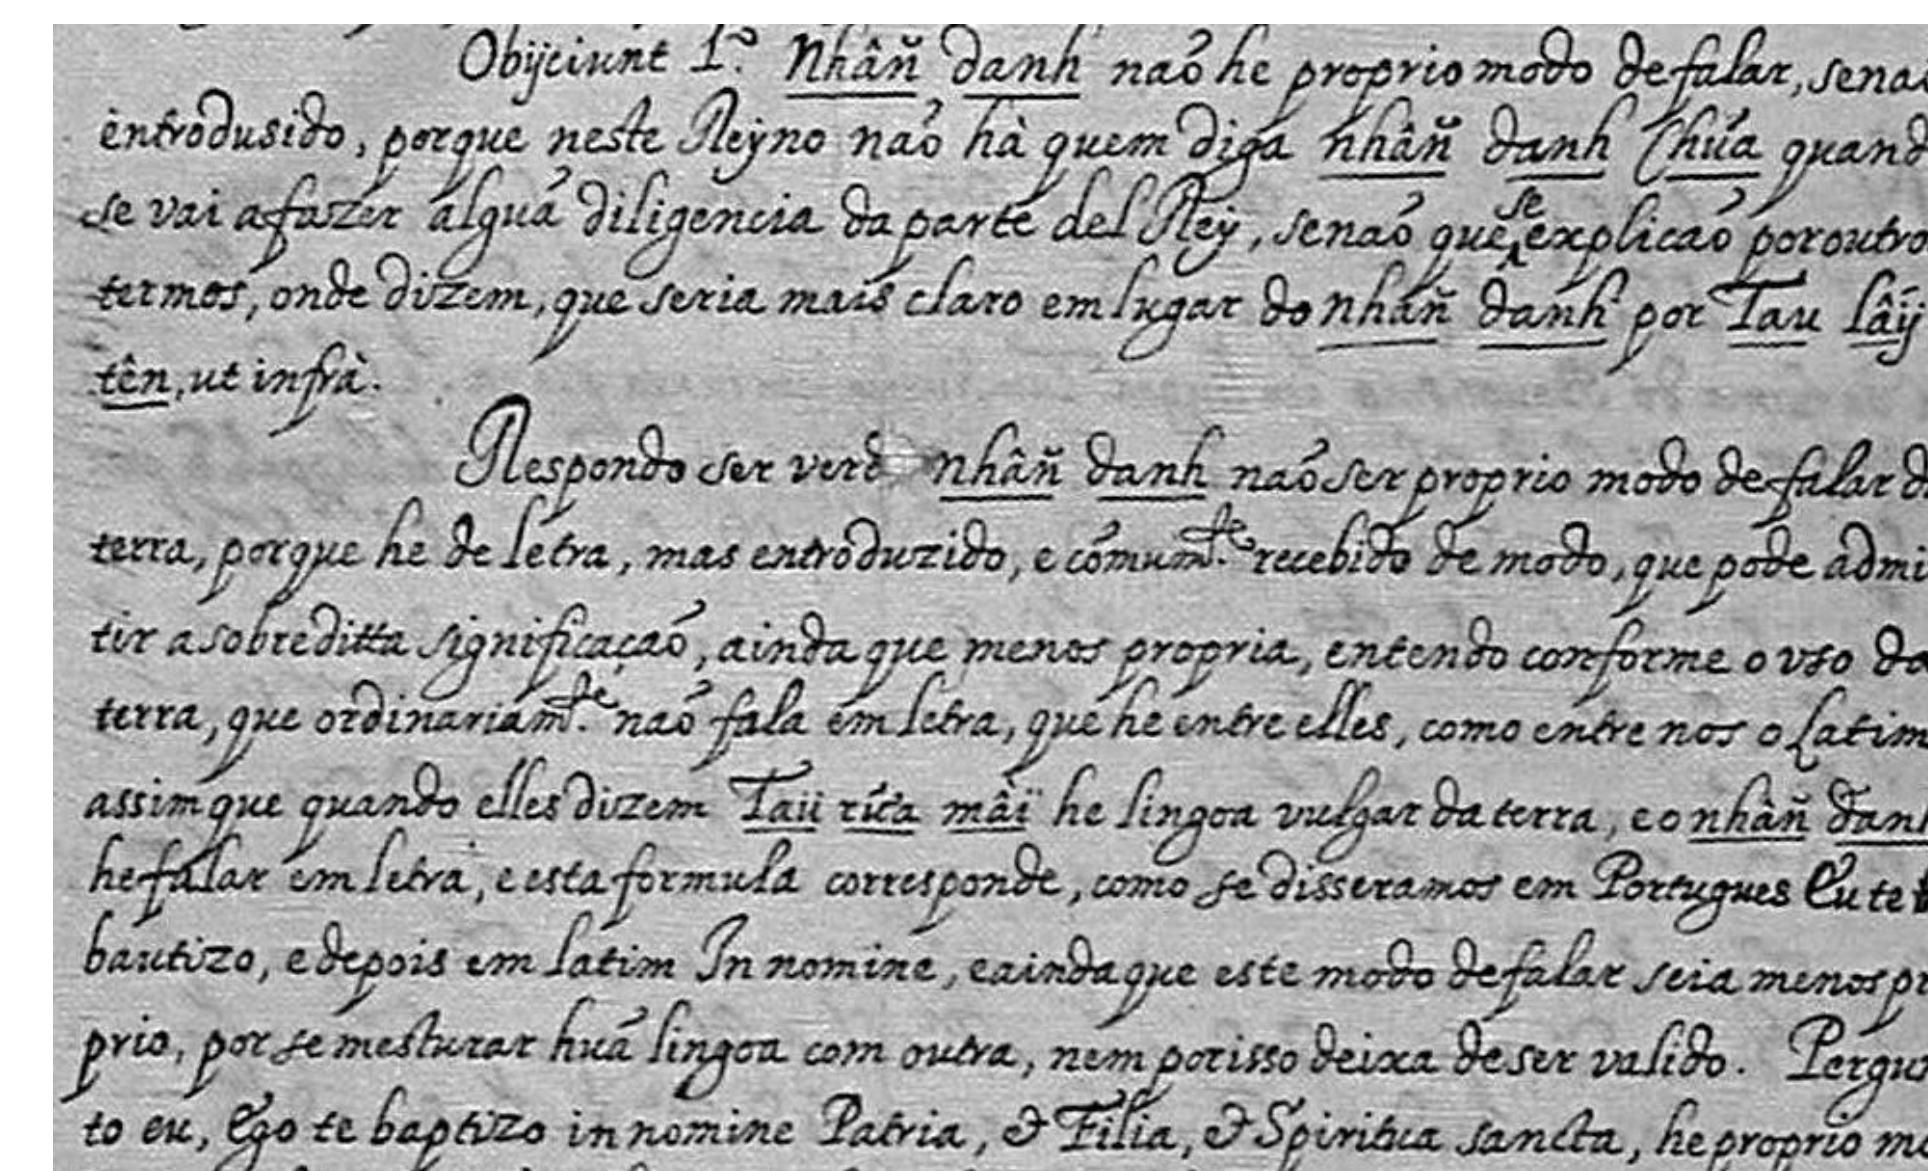 Obijciunt 1º. Nhâñ danh naõ he proprio modo de falar, senaõ
entrodusido, porque neste Reyno naõ hà quem diga nhâñ danh Chúa quand
se vai a fazer alguã diligencia da parte del Rey, senaõ que se explicaõ por outro
termos, onde dizem, que seria mais claro em lugar do nhâñ danh por Tau lấÿ
tên, ut infrà.
Respondo ser verd nhâñ danh naõ ser proprio modo de falar d
terra, porque he de letra, mas entroduzido, e cõmumte. recebido de modo, que pode admi
tir a sobreditta significaçaõ, ainda que menos propria, entendo conforme o vso da
terra, que ordinariamte. naõ fala em letra, que he entre elles, como entre nos o Latim
assim que quando elles dizem Taü rứa mầï he lingoa vulgar da terra, e o nhâñ danh
he falar em letra, e esta formula corresponde, como se disseramos em Portugues Eu te
bautizo, e depois em latim In nomine, e ainda que este modo de falar seia menos pr
prio, por se mesturar huã lingoa com outra, nem por isso deixa de ser valido. Pergun
to eu, Ego te baptizo in nomine Patria, & Filia, & Spiritua sancta, he proprio mo